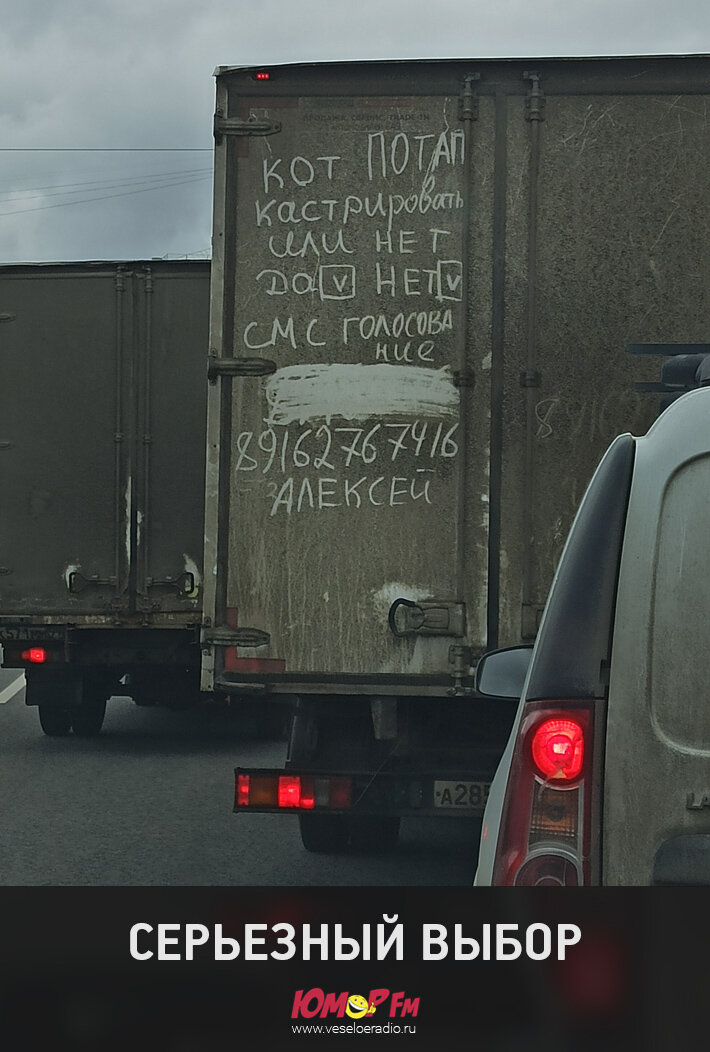 КОТ ПОТАП
кастрировать
или нет
Да V НЕТ V
СМС голосова
ние
89162767416
АЛЕКСЕЙ
А285
СЕРЬЕЗНЫЙ ВЫБОР
ЮМОР FM
www.veseloeradio.ru